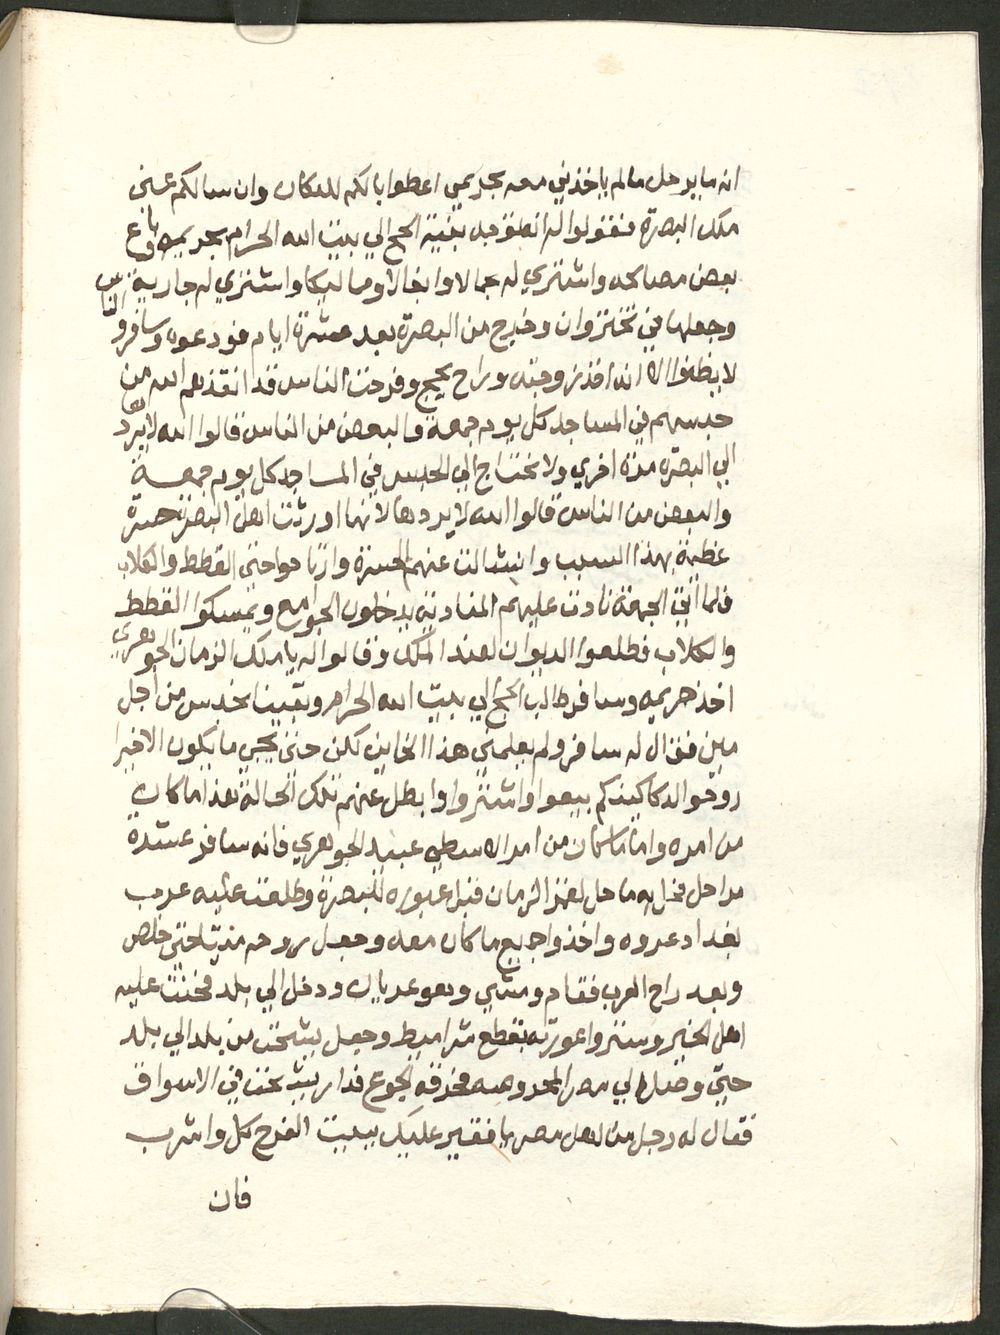 انه ما يرحل ما لم ياخذني معه بحريمي اعطوا بالكم للمكان وان سالكم عني
ملك البصرة فقولوا له انه توجه بنية الحج الي بيت الله الحرام بحريمه وباع
بعض مصالحه واشتري له جمالا وابغالا ومماليكا واشتري له جارية
وجعلها في تختروان وخرج من البصرة بعد عشرة ايام فودعوه وسافر والناس
لا يظنوا الا انه اخذ زوجته وراح يحج وفرحت الناس قد انقذهم الله من
حبسهم في المساجد كل يوم جمعة والبعض من الناس قالوا الله لا يردها
الي البصره مرة اخري ولا نحتاج الي الحبس في المساجد كل يوم جمعة
والبعض من الناس قالوا الله لا يردها لانها اورثت اهل البصرة حسرة
عظيمة بهذا السبب وانشالت عنهم الحسرة وارتاحوا حتي القطط والكلاب
فلما اتت الجمعة نادت عليهم المنادية يدخلون الجوامع ويمسكوا القطط
والكلاب فطلعوا الديوان لعند الملك وقالوا له يا ملك الزمان الجوهري
اخذ حريمه وسافر طالب الحج الي بيت الله الحرام وبقينا نحبس من اجل
مين فقال له سافر ولم يعلمني هذا الخاين لكن حتي يجي ما يكون الا خيرا
روحوا لدكاكينكم بيعوا واشتروا وابطل عنهم تلك الحالة هذا ما كان
من امره واما ما كان من امر الاسطي عبيد الجوهري فانه سافر عشرة
مراحل فحل به ما حل لقمر الزمان قبل عبوره للبصرة وطلعت عليه عرب
بغداد عروه واخذوا جميع ما كان معه وجعل روحه ميتا حتي خلص
وبعد راح العرب فقام ومشي وهو عريان ودخل الي بلد فحننت عليه
اهل الخير وستروا عورته بقطع شراميط وجعل يشحت من بلد الي بلد
حتي وصل الي مصر المحروسه فحرقه الجوع فدار يشحت في الاسواق
فقال له رجل من اهل مصر يا فقير عليك ببيت الفرح كل واشرب
فان